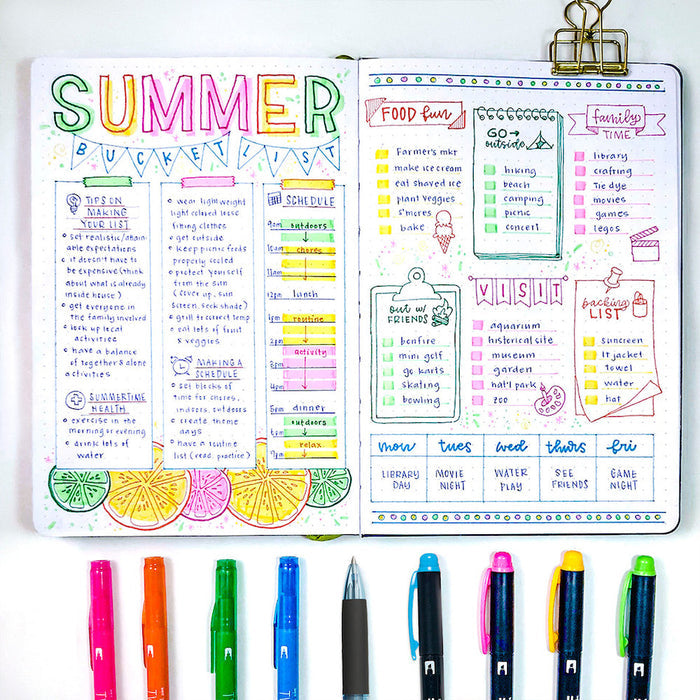 SUMMER
BUCKET LIST
TIPS ON
MAKING
YOUR LIST
set realistic/attain
able expectations
it doesn't have to
be expensive (think
about what is already
inside house)
get everyone in
the family involved
look up local
activities
have a balance
of together & alone
activities
SUMMERTIME
HEALTH
exercise in the
morning or evening
drink lots of
water
wear lightweight
light colored loose
fitting clothes
get outside
keep picnic foods
properly cooled
protect yourself
from the sun
(cover up, sun
screen, seek shade)
grill to correct temp
eat lots of fruit
x veggies
MAKING A
SCHEDULE
set blocks of
time for chores,
indoors, outdoors
create theme
days
have a routine
list (read, practice)
SCHEDULE
9am outdoors
10am chores
11am
12pm lunch
1pm routine
2pm
activity
5pm dinner
outdoors
relax
9pm
FOOD fun
Farmer's mkt
make ice cream
eat shaved ice
plant veggies
s'mores
bake
GO→
outside
hiking
beach
camping
picnic
concert
family
TIME
library
crafting
Tie dye
movies
games
legos
out w/
FRIENDS
bonfire
mini golf
go karts
skating
bowling
VISIT
aquarium
historical site
museum
garden
nat'l park
zoo
packing
LIST
sunscreen
lt jacket
towel
water
hat
mon tues wed thurs fri
LIBRARY DAY
MOVIE NIGHT
WATER PLAY
SEE FRIENDS
GAME NIGHT